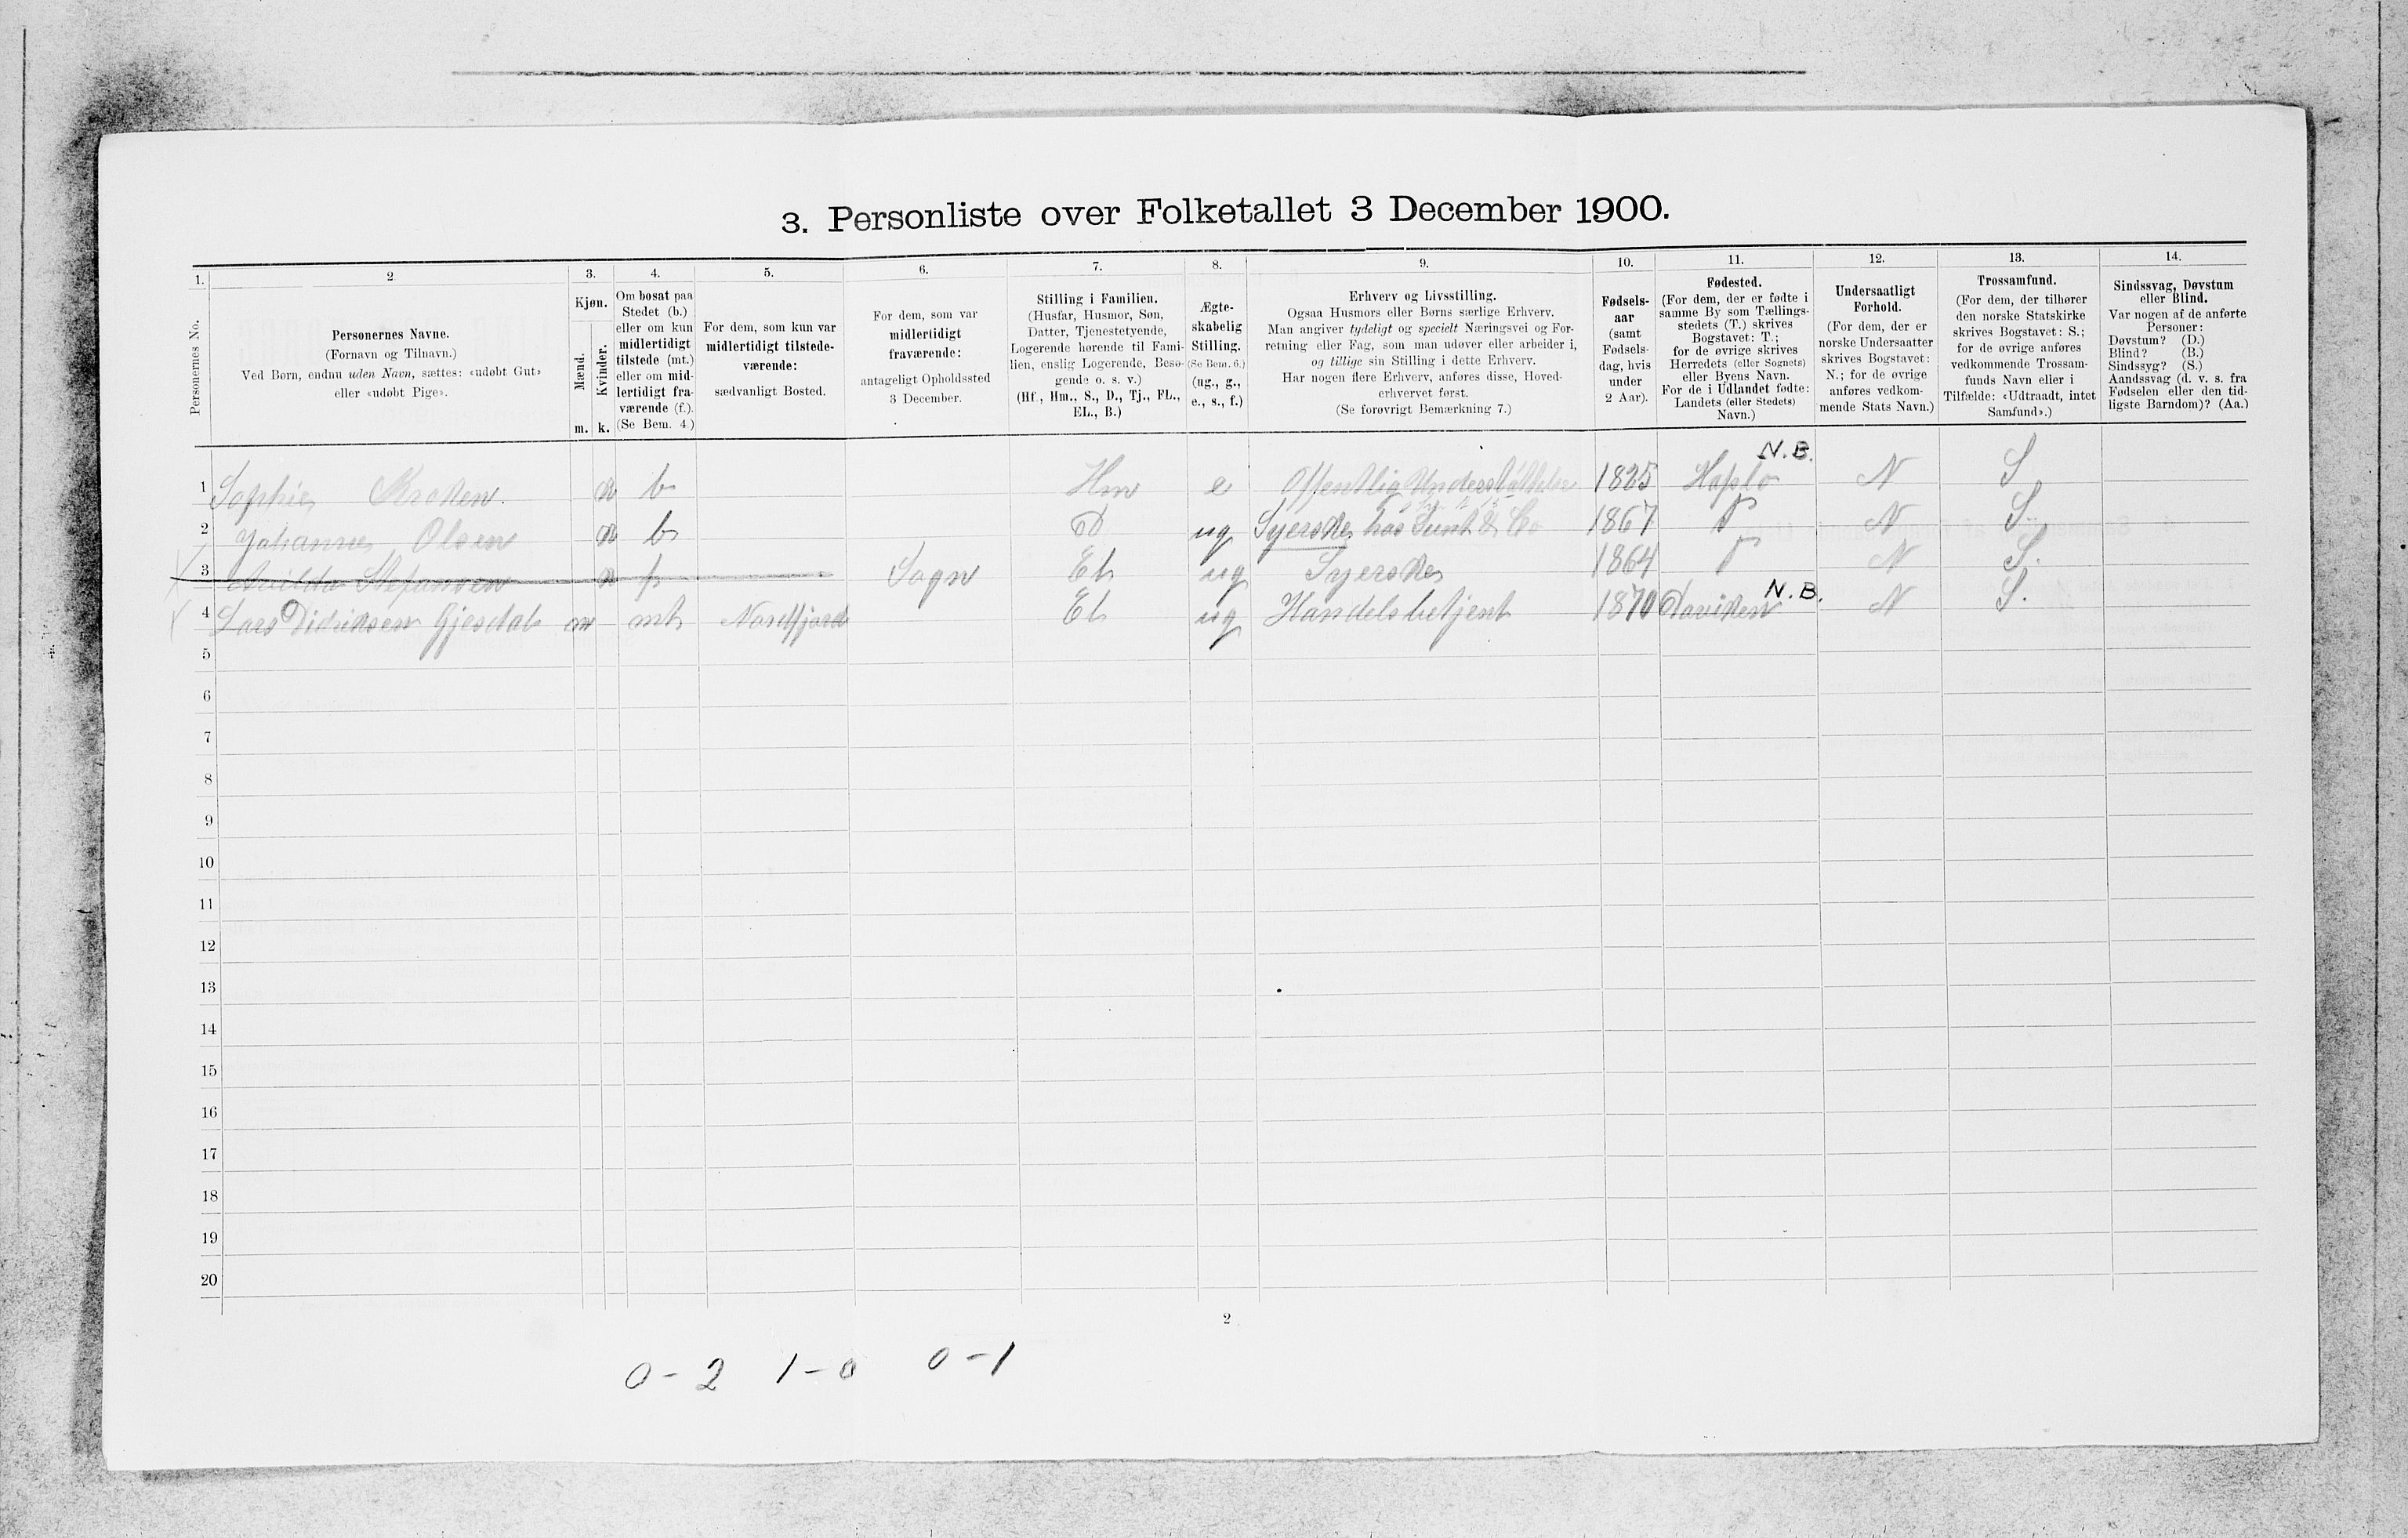 3. Personliste over Folketallet 3 December 1900.
1. 2 3. 4. 5. 6. 7. 8. 9. 10. 11. 12. 13. 14.
Personernes No.
Personernes Navne.
(Fornavn og Tilnavn.)
Ved Børn, endnu uden Navn, sættes: «udøbt Gut»
eller «udøbt Pige».
Kjøn.
Mænd.
Kvinder.
m. k.
Om bosat paa
Stedet (b.)
eller om kun
midlertidigt
tilstede (mt.)
eller om mid-
lertidigt fra-
værende (f.).
(Se Bem. 4.)
For dem, som kun var
midlertidigt tilstede-
værende:
sædvanligt Bosted.
For dem, som var
midlertidigt
fraværende:
antageligt Opholdssted
3 December.
Stilling i Familien.
(Husfar, Husmor, Søn,
Datter, Tjenestetyende,
Logerende hørende til Fami-
lien, enslig Logerende, Besø-
gende o. s. v.)
(Hf., Hm., S., D., Tj., FL.,
EL., B.)
Ægte-
skabelig
Stilling.
(Se Bem. 6.)
(ug., g.,
e., s., f.)
Erhverv og Livsstilling.
Ogsaa Husmors eller Børns særlige Erhverv.
Man angiver tydeligt og specielt Næringsvei og For-
retning eller Fag, som man udøver eller arbeider i,
og tillige sin Stilling i dette Erhverv.
Har nogen flere Erhverv, anføres disse, Hoved-
erhvervet først.
(Se forøvrigt Bemærkning 7.)
Fødsels-
aar
(samt
Fødsels-
dag, hvis
under
2 Aar).
Fødested.
(For dem, der er fødte i
samme By som Tællings-
stedets (T.) skrives
Bogstavet: T.;
for de øvrige skrives
Herredets (eller Sognets)
eller Byens Navn.
For de i Udlandet fødte:
Landets (eller Stedets)
Navn.)
Undersaatligt
Forhold.
(For dem, der er
norske Undersaatter
skrives Bogstavet:
N.; for de øvrige
anføres vedkom-
mende Stats Navn.)
Trossamfund.
(For dem, der tilhører
den norske Statskirke
skrives Bogstavet: S.;
for de øvrige anføres
vedkommende Trossam-
funds Navn eller i
Tilfælde: «Udtraadt, intet
Samfund».)
Sindssvag, Døvstum
eller Blind.
Var nogen af de anførte
Personer:
Døvstum? (D.)
Blind? (B.)
Sindssyg? (S.)
Aandssvag (d. v. s. fra
Fødselen eller den tid-
ligste Barndom)? (Aa.)
N.B.
1 Sophie Kroken. k b Hm e Offentlig Understøttelse 1825 N S
2 Johanne Olsen k b D ug Syerske hos Sunt & Co 1867 T N S.
3 Stefansen k f Sogn El ug Syerske 1864 T N S.
N.B.
4 Lars Didriksen Gjesdal m mt Nordfjord El ug Handelsbetjent 1870 Daviken N S.
5
6
7
8
9
10
11
12
13
14
15
16
17
18
19
20
2
0-2 1-0 0-1